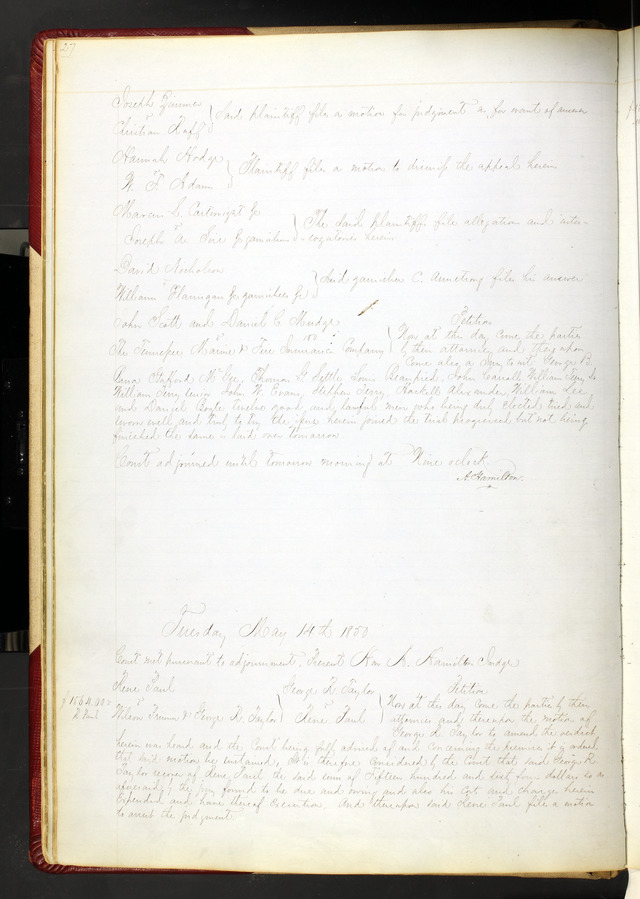 27
Joseph
vs
Christian
Said plaintiff files a motion for judgment as for want of answer
Hannah Hodge
vs
W. F. Adam
Plaintiff files a motion to dismiss the appeal herein
L. Cartwright
vs
Joseph
The said plaintiffs file allegations and inter-
-rogatories herein
David Nicholson
vs
William Flannigan
Said garnishee C. Armstrong files his answer
John Scott and Daniel C.
vs
The Tennessee Marine & Fire Insurance Company
Petition
Now at this day come the parties
by their attornies, and thereupon
Come also a Jury to wit George B.
Thomas G. Settle Louis John William
William Terry John W. Evans, Stephen Terry, Alexander, William
and Daniel twelve good and lawful men who being duly elected tried and
sworn well and truly to try the issue herein joined the trial progressed but not being
finished the same is laid over tomorrow
Court adjourned until tomorrow morning at Nine oclock
A. Hamilton.
Tuesday May 14th 1850
Court met pursuant to adjournment. Present Hon A. Hamilton Judge
Rene Paul
vs
Wilson & George R Taylor
George R. Taylor
vs
Rene Paul
Petition
Now at this day come the parties by their
attornies and thereupon the motion of
George R Taylor to amend the verdict
herein was heard and the Court being fully advised of and concerning the premises it is ordered
that said motion be sustained, It is therefore Considered by the Court that said George R
Taylor recover of Rene Paul the said sum of Fifteen hundred and sixty four dollars so as
aforesaid by the Jury found to be due and owing and also his Cost and charges herein
Expended and have thereof Execution. And thereupon said Rene Paul files a motion
to arrest the judgment